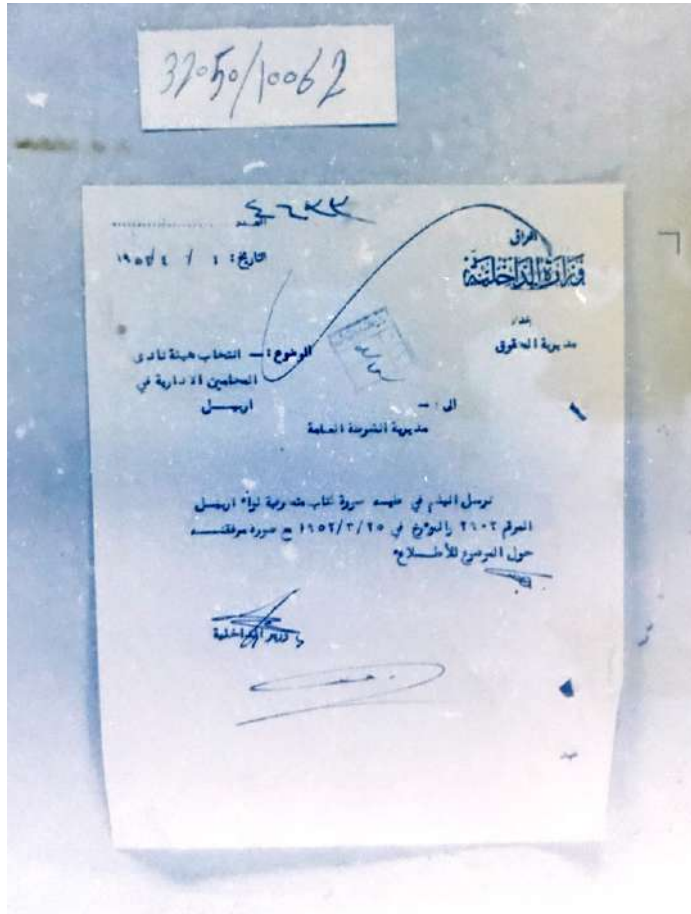 32050/10062
٤٢٣٣
العدد
العراق
التاريخ: ١ / ٤ / ١٩٥٢
وزارة الداخلية
بغداد
مديرية الحقوق
الموضوع: — انتخاب هيئة نادى
المحامين الادارية في
اربيل
الى: —
مديرية الشرطة العامة
نرسل اليكم في طيه صورة كتاب متصرفية لواء اربيل
المرقم ٢٦٠٢ والمؤرخ في ٢٥/٣/١٩٥٢ مع صورة مرفقته
حول الموضوع للأطلاع
وزير الداخلية